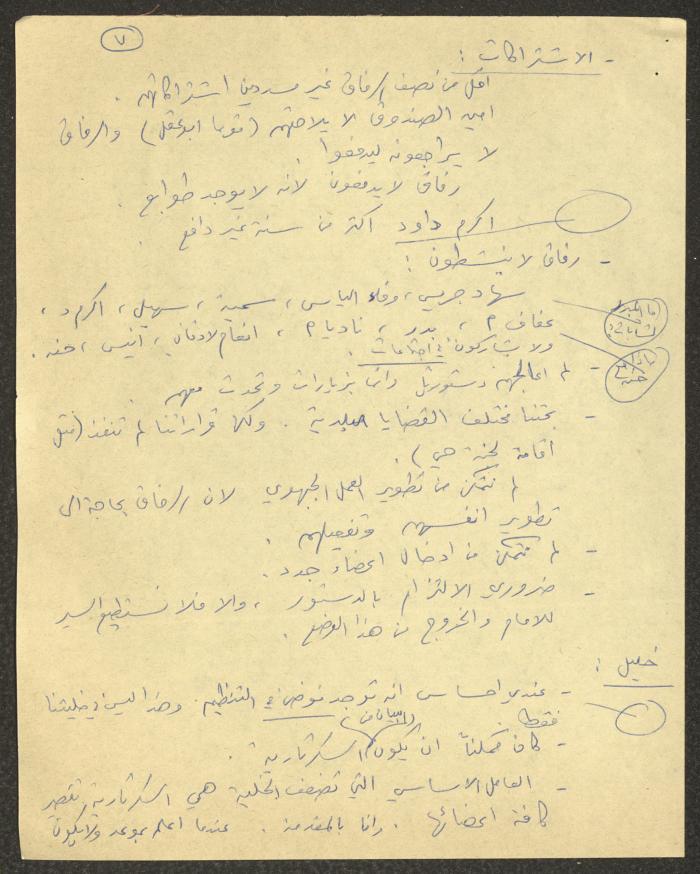 ٧
- الاشتراكات :
اقل من نصف الرفاق غير مسددين اشتراكاتهم .
امين الصندوق لا يلاحقهم (توما ابو عقل) والرفاق
لا يراجعونه ليدفعوا .
رفاق لا يدفعون لانه لا يوجد طوابع .
اكرم داود اكثر من سنة غير دافع .
- رفاق لا ينشطون :
سهاد جريس، وفاء الياس، سمية، سهيل، اكرم د،
عفاف م، بدر، ناديا م، انعام، انيس، حنه.
ولا يشاركون في اجتماعات .
- لم اعالجهم دستوريا، دائما بزيارات وتحدث معهم .
- بحثنا مختلف القضايا البلدية . ولكن قراراتنا لم تنفذ (مثل
اقامة لجنة حي) .
لم نتمكن من تطوير العمل الجبهوي لان الرفاق بحاجة الى
تطوير انفسهم وتفعيلهم .
- لم نتمكن من ادخال اعضاء جدد .
- ضروري الالتزام بالدستور، والا فلا نستطيع السير
للامام والخروج من هذا الوضع .
خليل :
- عندي احساس انه توجد فوضى في التنظيم. وهذا ليس في خليتنا
فقط
- كان ممكناً ان يكون (البيان من) السكرتارية .
- العامل الاساسي التي تضعف الخلية هي السكرتارية، تقصير
كافة اعضائها . وانا بالمقدمة . عندما اعلم بموعد ولا يكون